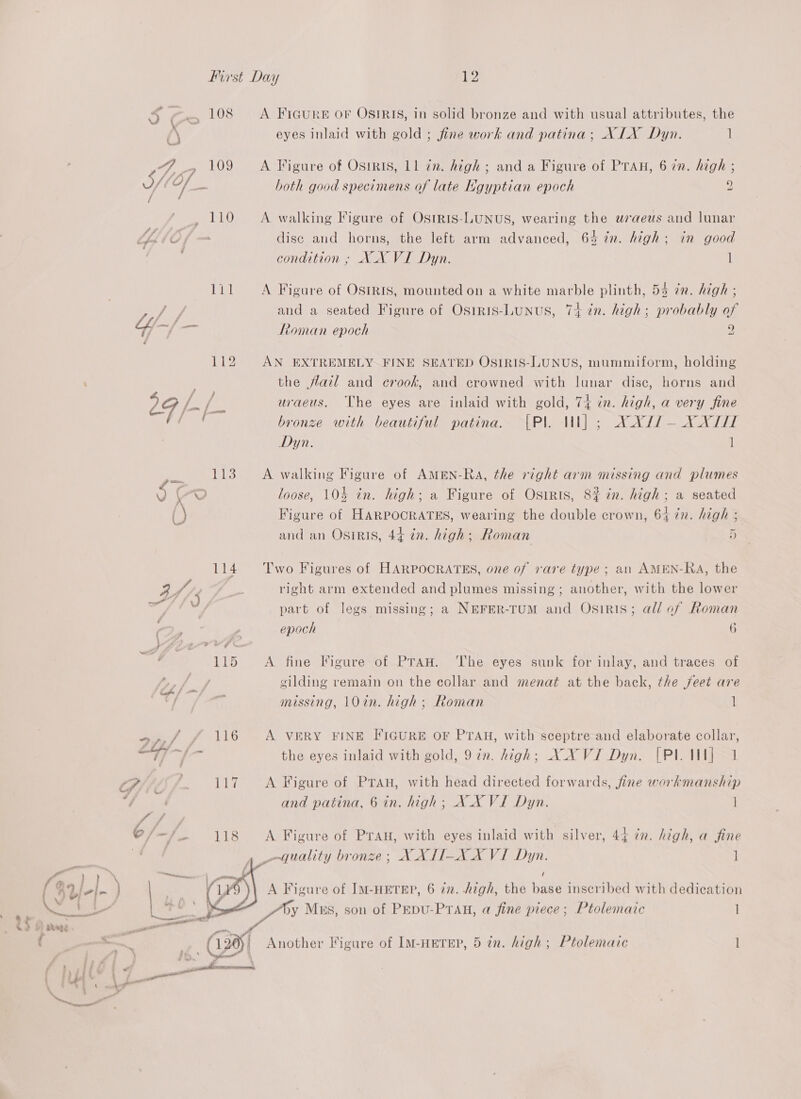 First Day 12
108 A FIGURE OF OSIRIS, in solid bronze and with usual attributes, the
eyes inlaid with gold ; fine work and patina ; XIX Dyn. 1
109 A Figure of OSIRIS, 11 in. high ; and a Figure of PTAH, 6 in. high ;
both good specimens of late Egyptian epoch 2
110 A walking Figure of OSIRIS-LUNUS, wearing the uraeus and lunar
disc and horns, the left arm advanced, 6½ in. high ; in good
condition ; XXVI Dyn. 1
111 A Figure of OSIRIS, mounted on a white marble plinth, 5½ in. high ;
and a seated Figure of OSIRIS-LUNUS, 7¼ in. high ; probably of
Roman epoch 2
112 AN EXTREMELY FINE SEATED OSIRIS-LUNUS, mummiform, holding
the flail and crook, and crowned with lunar disc, horns and
29/-/- uraeus. The eyes are inlaid with gold, 7¼ in. high, a very fine
bronze with beautiful patina. [Pl. III] ; XXII – XXIII
Dyn. 1
113 A walking Figure of AMEN-RA, the right arm missing and plumes
loose, 10½ in. high ; a Figure of OSIRIS, 8¾ in. high ; a seated
Figure of HARPOCRATES, wearing the double crown, 6¼ in. high ;
and an OSIRIS, 4¼ in. high ; Roman 5
114 Two Figures of HARPOCRATES, one of rare type ; an AMEN-RA, the
right arm extended and plumes missing ; another, with the lower
part of legs missing ; a NEFER-TUM and OSIRIS ; all of Roman
epoch 6
115 A fine Figure of PTAH. The eyes sunk for inlay, and traces of
gilding remain on the collar and menat at the back, the feet are
missing, 10 in. high ; Roman 1
116 A VERY FINE FIGURE OF PTAH, with sceptre and elaborate collar,
the eyes inlaid with gold, 9 in. high ; XXVI Dyn. [Pl. III] 1
117 A Figure of PTAH, with head directed forwards, fine workmanship
and patina, 6 in. high ; XXVI Dyn. 1
6/-/- 118 A Figure of PTAH, with eyes inlaid with silver, 4¼ in. high, a fine
quality bronze ; XXII–XXVI Dyn. 1
119 A Figure of IM-HETEP, 6 in. high, the base inscribed with dedication
by MES, son of PEDU-PTAH, a fine piece ; Ptolemaic 1
120 Another Figure of IM-HETEP, 5 in. high ; Ptolemaic 1